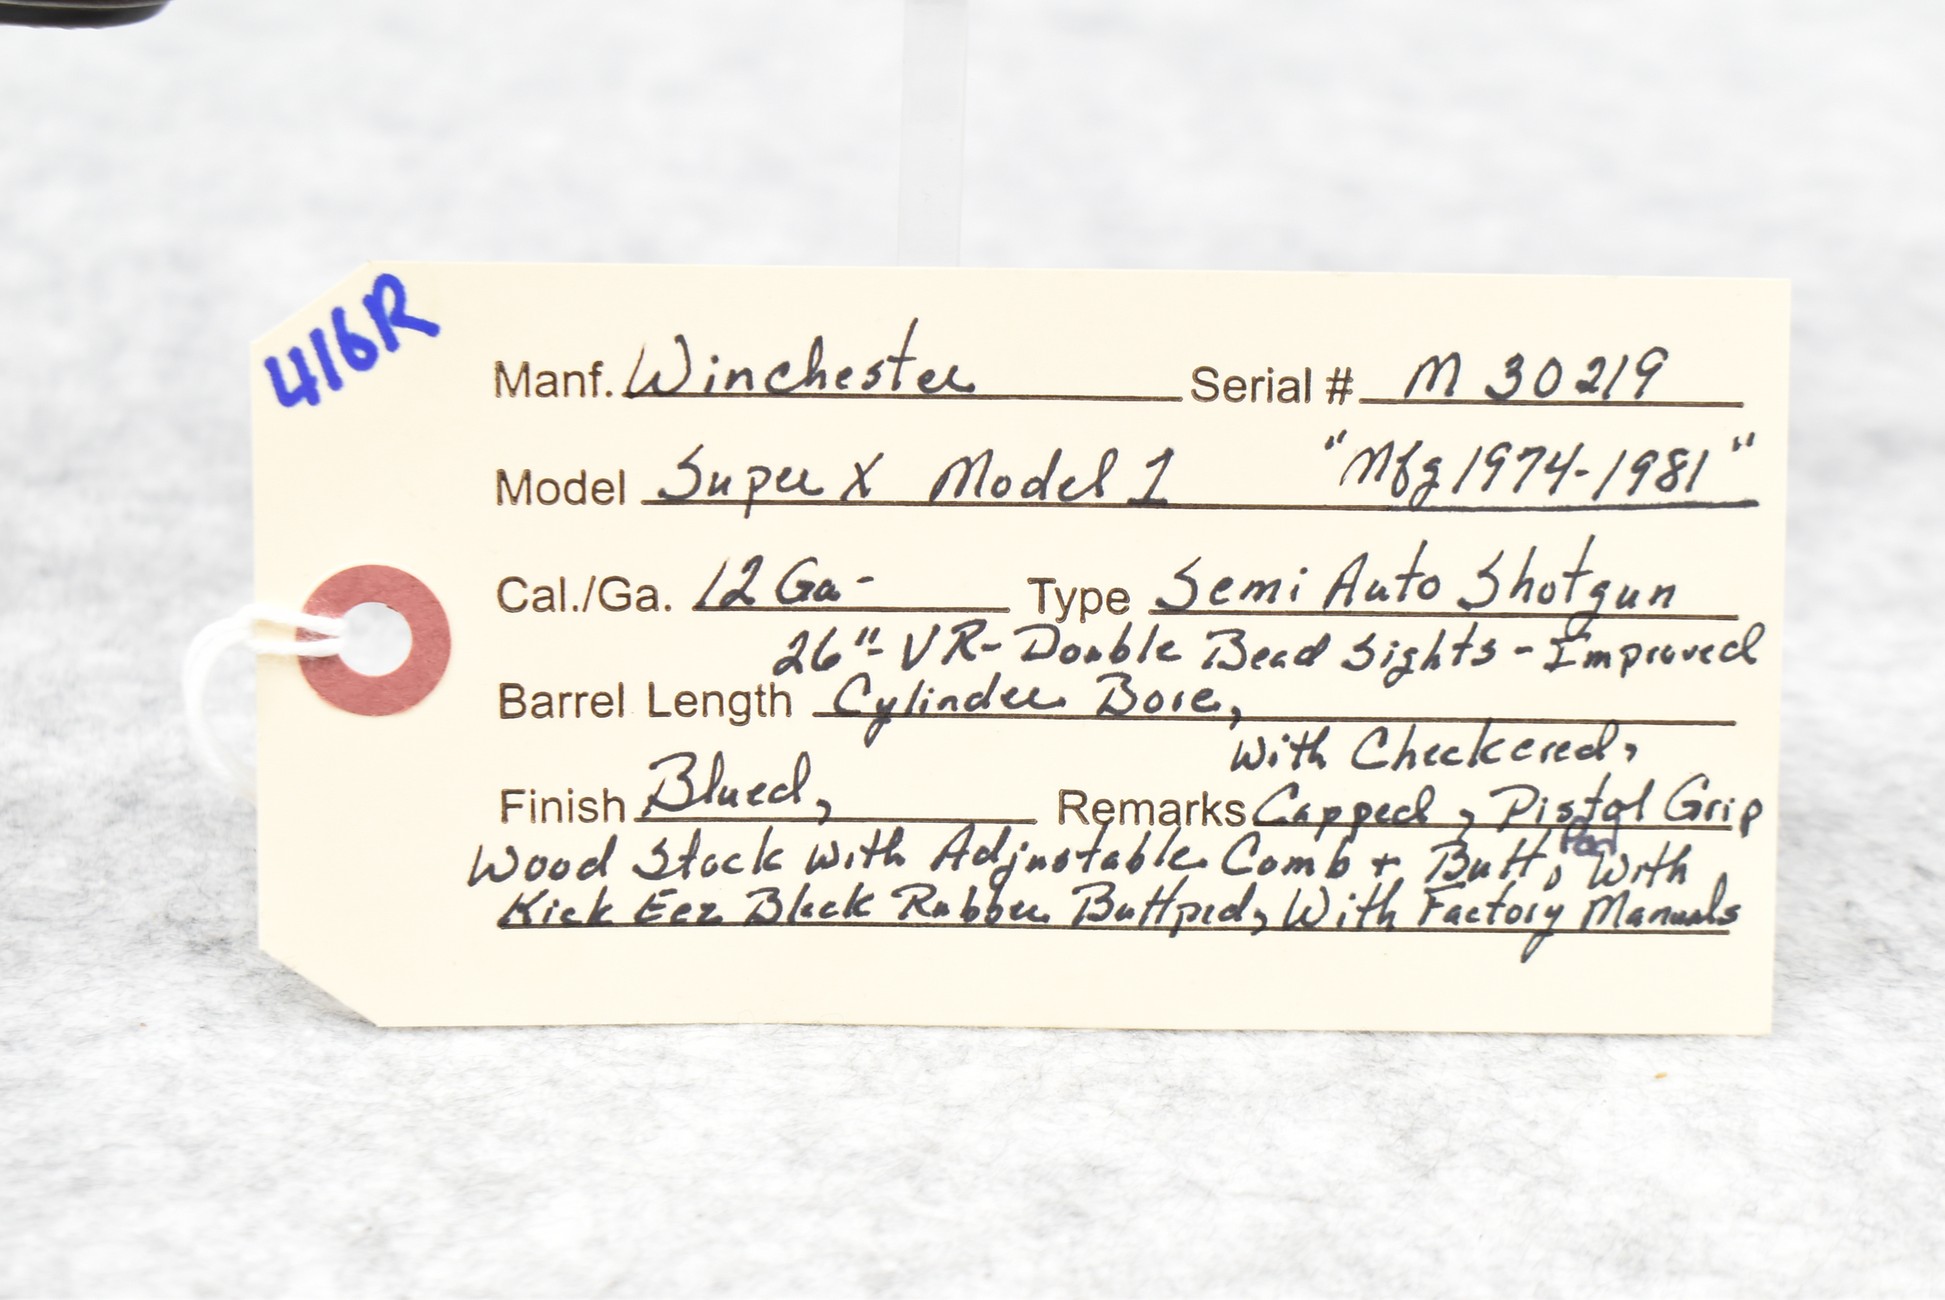 416R
Manf. Winchester Serial # M 30219
Model Super X Model 1 "Mfg 1974-1981"
Cal./Ga. 12 Ga- Type Semi Auto Shotgun
26"- VR- Double Bead Sights - Improved
Barrel Length Cylinder Bore,
With Checkered,
Finish Blued, Remarks Capped, Pistol Grip
Wood Stock with Adjustable Comb + Butt, Pad With
Kick Eez Black Rubber Buttpad, With Factory Manuals